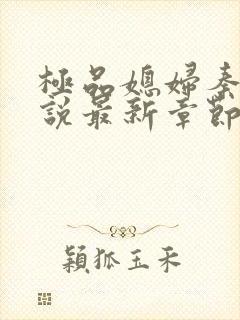 極品媳婦秦
說最新章節
穎狐玉禾